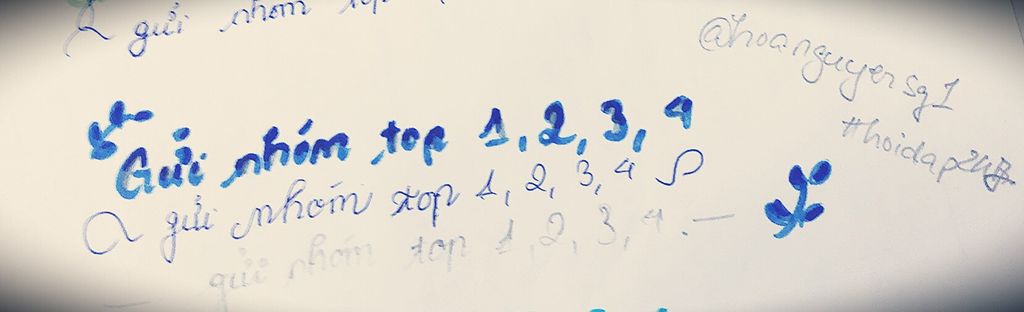 gửi nhóm top
@hoanguyensg1
#hoidap247
Gửi nhóm top 1, 2, 3, 4
gửi nhóm top 1, 2, 3, 4
gửi nhóm top 1, 2, 3, 4.